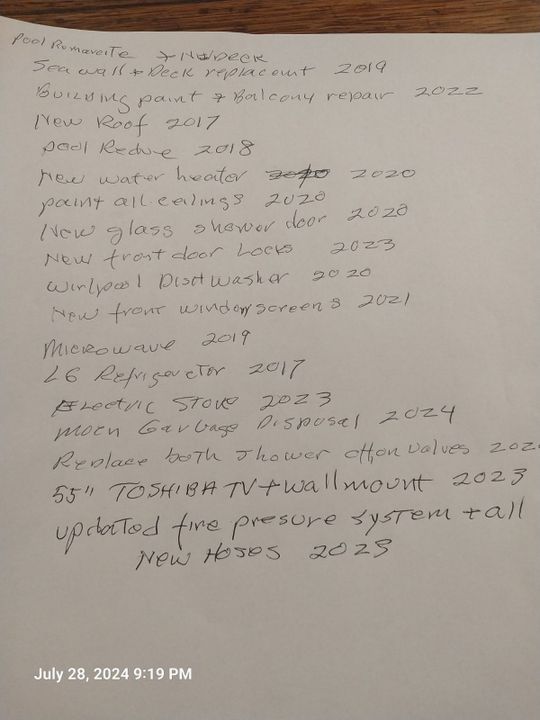 Pool Romaveite + NWDECK
Sea wall + Deck replacement 2019
Building paint + Balcony repair 2022
New Roof 2017
pool Redue 2018
New water heater 2020
paint all ceilings 2020
New glass shower door 2020
New front door Locks 2023
Wirlpool Dishwasher 2020
New front window screens 2021
Microwave 2019
LG Refrigerator 2017
Electric Stove 2023
Moen Garbage Disposal 2024
Replace both shower valves
55" TOSHIBA TV + wallmount 2023
updated fire presure system + all
New Hoses 2023
July 28, 2024 9:19 PM